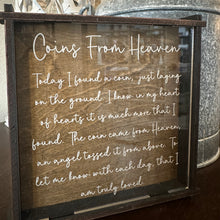 Coins From Heaven
Today I found a coin, just laying
on the ground. I know in my heart
of hearts it is much more that I
found. The coin came from Heaven,
an angel tossed it from above. To
let me know with each day, that I
am truly loved